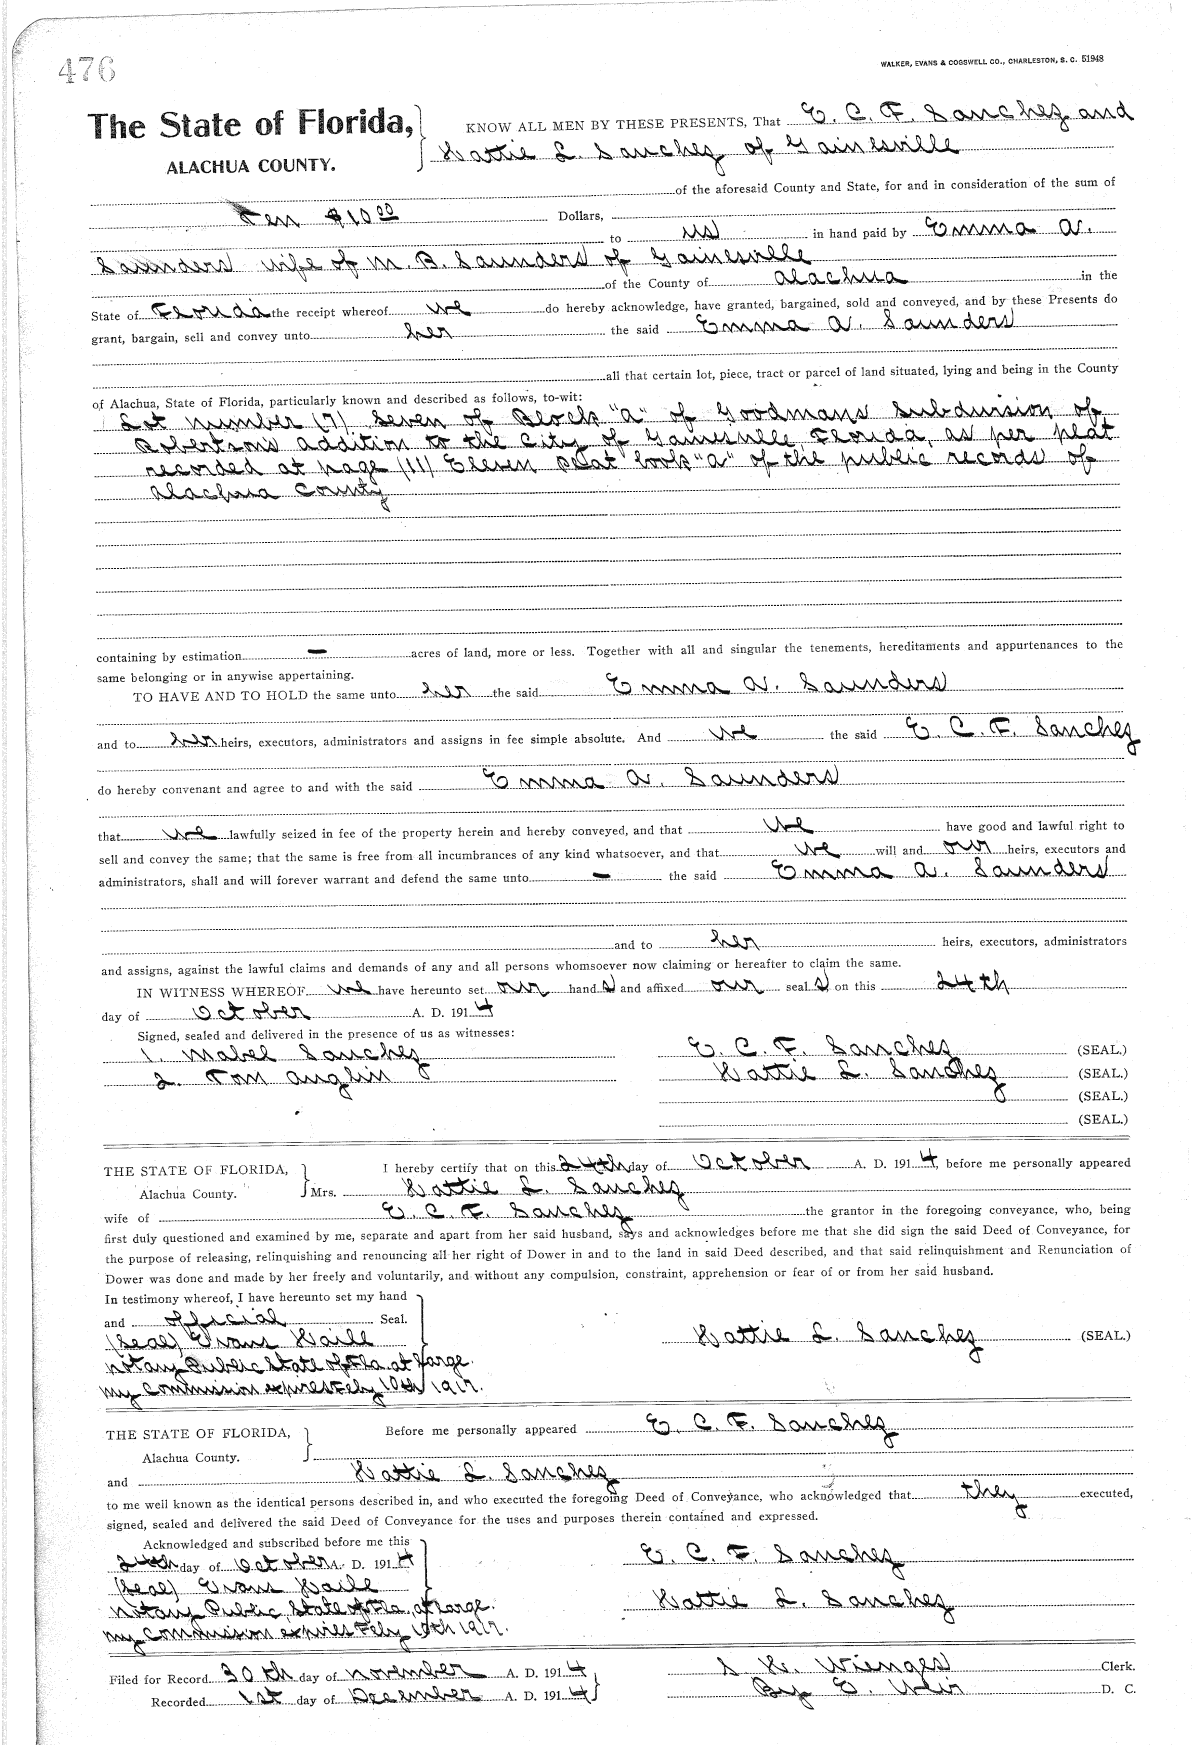 476
WALKER, EVANS & COGSWELL CO., CHARLESTON, S. C. 51948
The State of Florida, KNOW ALL MEN BY THESE PRESENTS, That E. C. F. Sanchez and
ALACHUA COUNTY. Hattie L. Sanchez of Gainesville
of the aforesaid County and State, for and in consideration of the sum of
Ten $10 00 Dollars,
to us in hand paid by Emma A.
Saunders wife of M. B. Saunders of Gainesville
of the County of Alachua in the
State of Florida the receipt whereof we do hereby acknowledge, have granted, bargained, sold and conveyed, and by these Presents do
grant, bargain, sell and convey unto her the said Emma A. Saunders
all that certain lot, piece, tract or parcel of land situated, lying and being in the County
of Alachua, State of Florida, particularly known and described as follows, to-wit:
Lot number (7) Seven of Block "A" of Goodmans Subdivision of
Robertson's addition to the City of Gainesville Florida, as per plat
recorded at page (11) Eleven plat book "A" of the public records of
Alachua County
containing by estimation - acres of land, more or less. Together with all and singular the tenements, hereditaments and appurtenances to the
same belonging or in anywise appertaining.
TO HAVE AND TO HOLD the same unto her the said Emma A. Saunders
and to her heirs, executors, administrators and assigns in fee simple absolute. And we the said E. C. F. Sanchez
do hereby convenant and agree to and with the said Emma A. Saunders
that we lawfully seized in fee of the property herein and hereby conveyed, and that we have good and lawful right to
sell and convey the same; that the same is free from all incumbrances of any kind whatsoever, and that we will and our heirs, executors and
administrators, shall and will forever warrant and defend the same unto - the said Emma A. Saunders
and to her heirs, executors, administrators
and assigns, against the lawful claims and demands of any and all persons whomsoever now claiming or hereafter to claim the same.
IN WITNESS WHEREOF we have hereunto set our hand s and affixed our seal s on this 24th
day of October A. D. 1914
Signed, sealed and delivered in the presence of us as witnesses:
1. Mabel Sanchez E. C. F. Sanchez (SEAL.)
2. Tom Anglin Hattie L. Sanchez (SEAL.)
(SEAL.)
(SEAL.)
THE STATE OF FLORIDA, I hereby certify that on this 24th day of October A. D. 1914, before me personally appeared
Alachua County. Mrs. Hattie L. Sanchez
wife of E. C. F. Sanchez the grantor in the foregoing conveyance, who, being
first duly questioned and examined by me, separate and apart from her said husband, says and acknowledges before me that she did sign the said Deed of Conveyance, for
the purpose of releasing, relinquishing and renouncing all her right of Dower in and to the land in said Deed described, and that said relinquishment and Renunciation of
Dower was done and made by her freely and voluntarily, and without any compulsion, constraint, apprehension or fear of or from her said husband.
In testimony whereof, I have hereunto set my hand
and official Seal.
(Seal) Evans Haile Hattie L. Sanchez (SEAL.)
Notary Public State of Fla. at Large.
My commission expires Feby 10th 1917.
THE STATE OF FLORIDA, Before me personally appeared E. C. F. Sanchez
Alachua County.
and Hattie L. Sanchez
to me well known as the identical persons described in, and who executed the foregoing Deed of Conveyance, who acknowledged that they executed,
signed, sealed and delivered the said Deed of Conveyance for the uses and purposes therein contained and expressed.
Acknowledged and subscribed before me this
24th day of October A. D. 1914 E. C. F. Sanchez
(Seal) Evans Haile
Notary Public, State of Fla., at Large. Hattie L. Sanchez
My commission expires Feby 10th 1917.
Filed for Record 30th day of November A. D. 1914 S. H. Wienges Clerk.
Recorded 1st day of December A. D. 1914 By E. D. C.